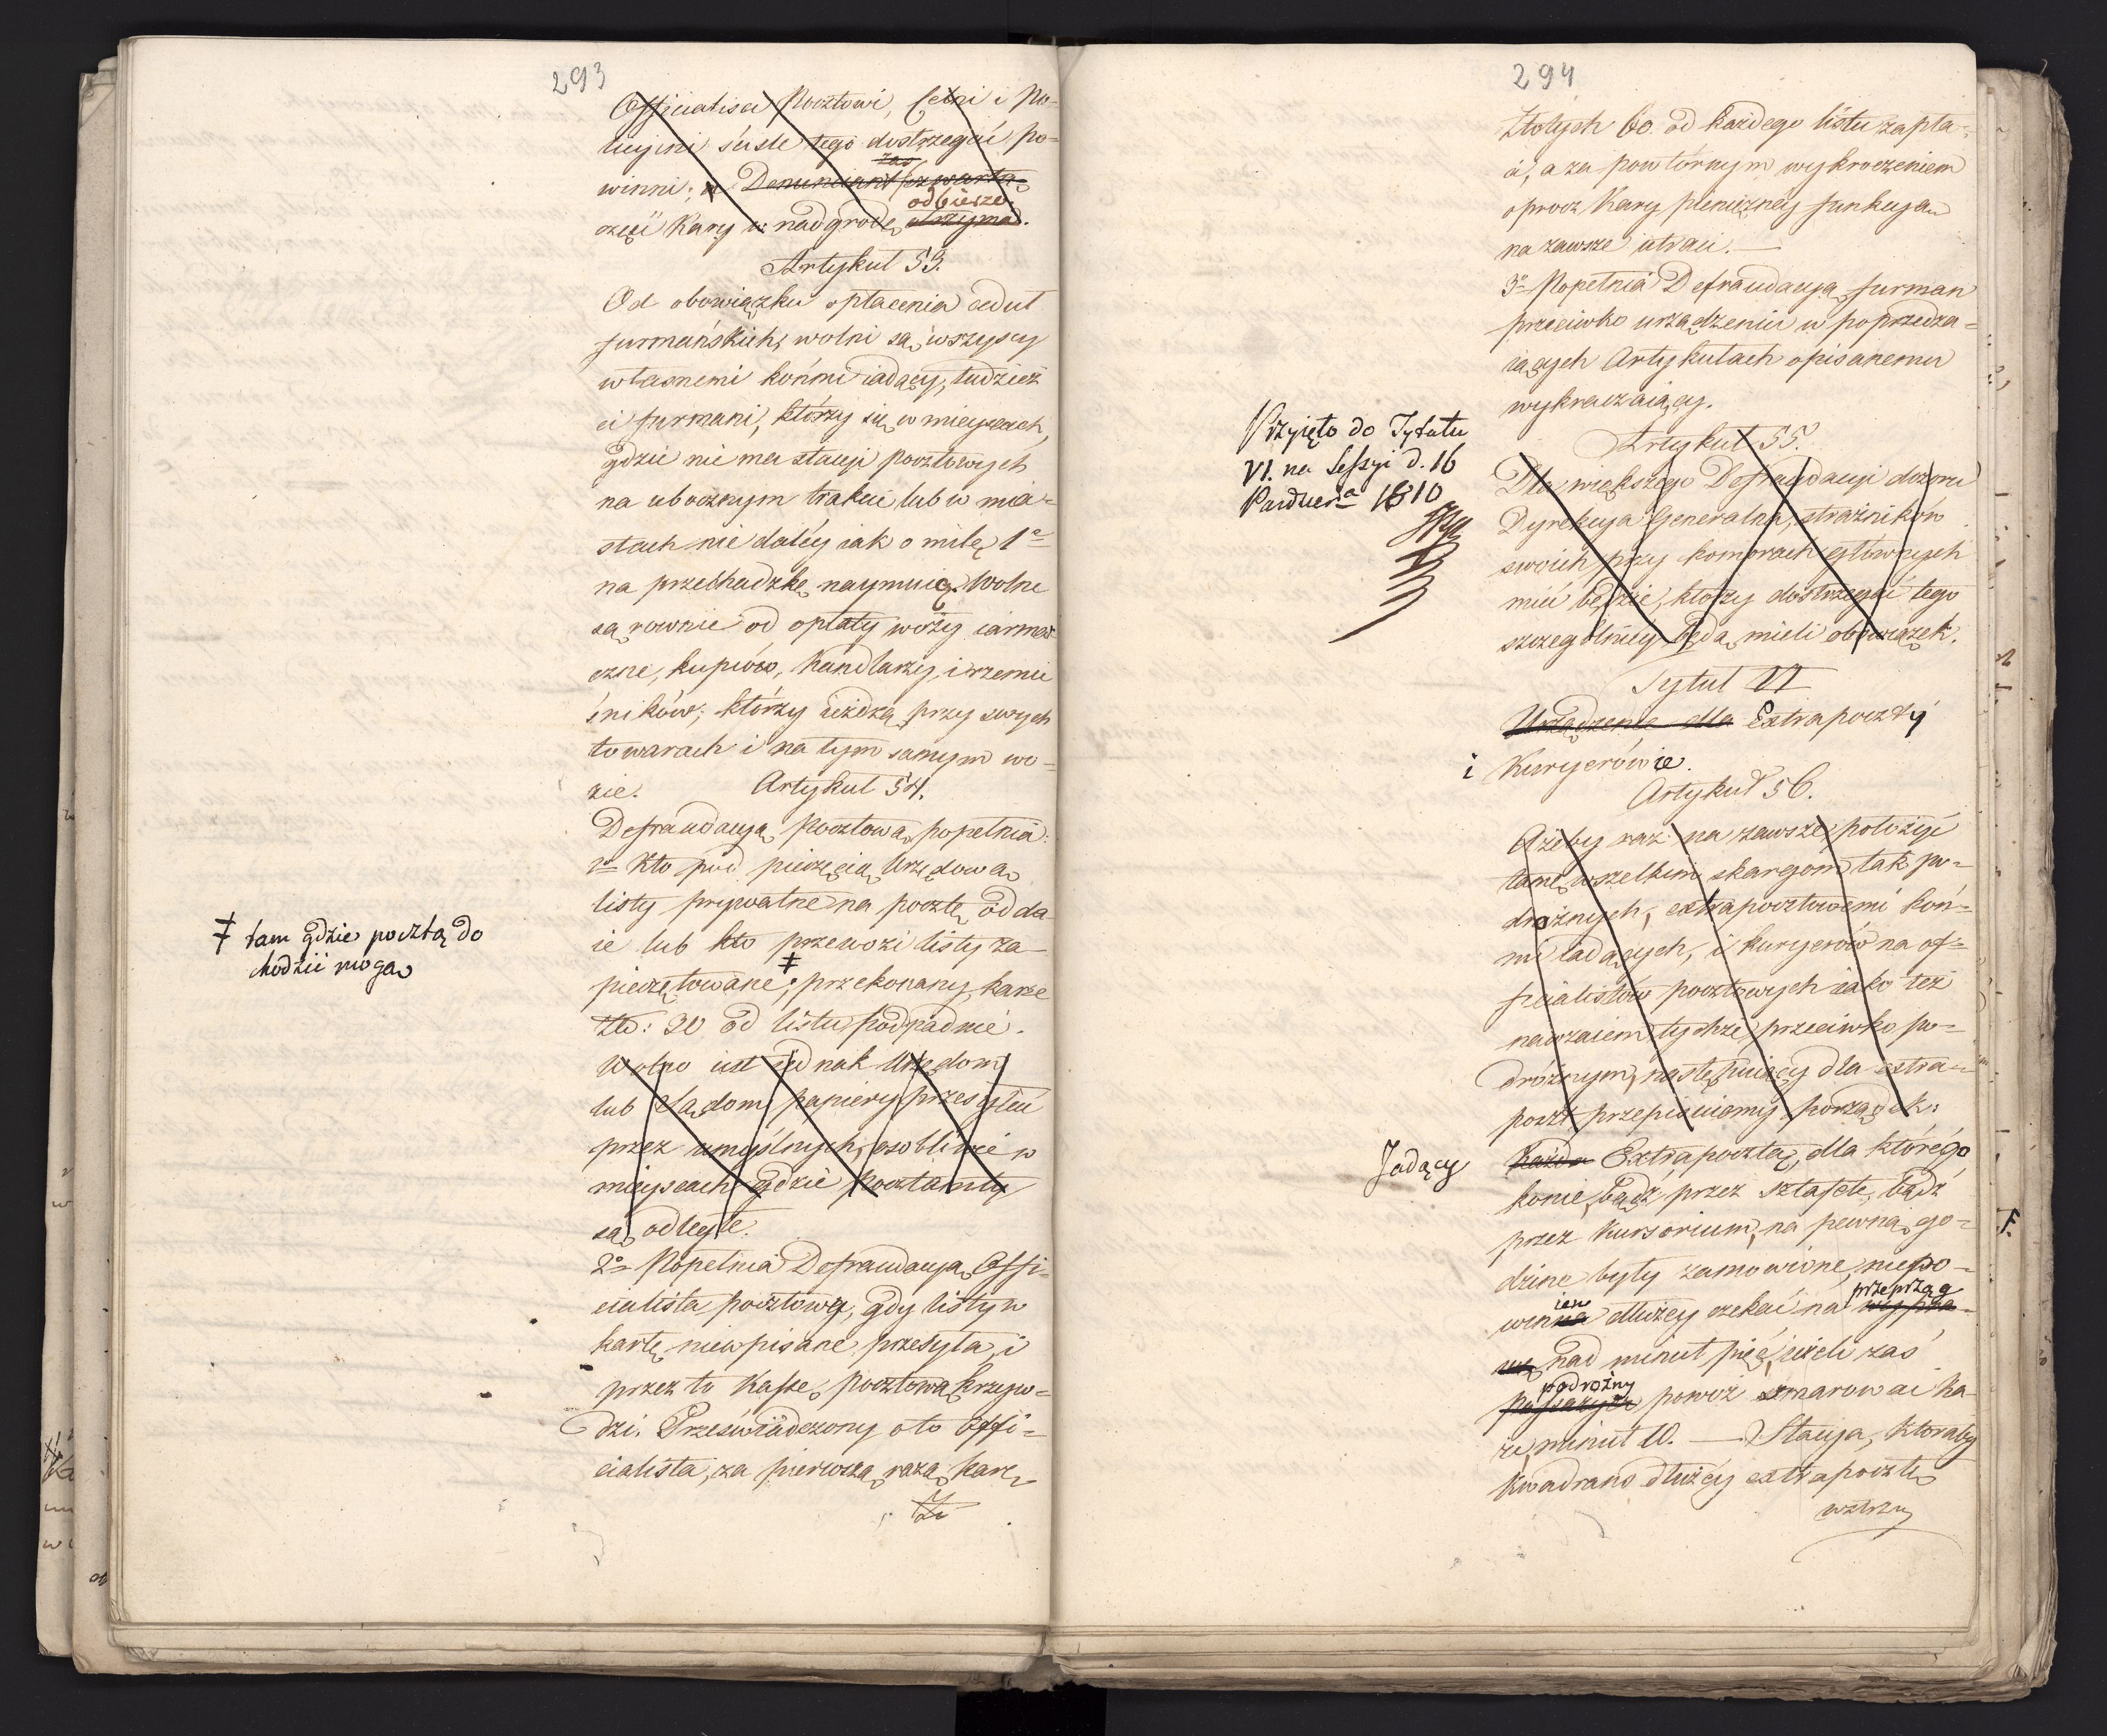 293
Officialisci Pocztowi, Celni i Po-
licyini ściśle tego dostrzegać po-
winni; a Denunciant czwartą
zas
części Kary w nadgrodę otrzyma.
odbierze
Artykuł 53.
Od obowiązku opłacenia ceduł
furmańskich, wolni są wszyscy
własnemi końmi iadący, tudzież
ci furmani, którzy się w mieyscach,
gdzie nie ma stacyi pocztowych
na ubocznym trakcie lub w mia-
stach nie daléy iak o milę 1ą
na przechadzkę naymuią. Wolne
są rownie od opłaty wozy iarmar
czne, kupców, handlarzy, i rzemie
śników, którzy ieżdżą przy swych
towarach i na tym samym wo-
zie. Artykuł 54.
Defraudacyą Pocztową popełnia:
1o Kto pod pieczęcią Urzędową
listy prywatne na pocztę odda-
ie lub kto przewozi listy za-
pieczętowane ‡; przekonany, karze
Zło: 30 od listu podpadnie.
‡ tam gdzie pocztą do
chodzić mogą
Wolno iest iednak Urzędom
lub Sądom papiery przesyłać
przez umyślnych, osobliwie w
mieyscach gdzie Pocztamty
są odległe.
2o Popełnia Defraudacyą Offi-
cialista pocztowy, gdy listy w
kartę niewpisane przesyła, i
przez to Kassę pocztową krzyw-
dzi. Przeświadczony o to offi-
cialista, za pierwszą razą karę
Zł
294
Złotych 60. od każdego listu zapła-
ci, a za powtórnym wykroczeniem
oprocz Kary pieniężnéy funkcyą
na zawsze utraci.
3o Popełnia Defraudacyą furman
przeciwko urządzeniu w poprzedza-
iących Artykułach opisanemu
wykraczaiący.
Przyięto do Tytułu
VI. na Sessyi d. 16
Paździer. 1810
Artykuł 55.
Dla większego Defraudacyi dozoru
Dyrekcya Generalna, strażników
swoich przy komorach głównych
mieć będzie, którzy dostrzegać tego
szczególniéy będą mieli obowiązek.
Tytuł VI
Urządzenie dla Extrapoczty
i Kuryerów ie.
Artykuł 56.
Ażeby raz na zawsze położyć
tamę wszelkim skargom tak po-
drożnych, extrapocztowemi koń-
mi iadących, i kuryerów na of-
ficialistów pocztowych iako też
nawzaiem tychże przeciwko po-
dróżnym, następuiący dla extra-
poczt przepisuiemy porządek:
Jadący Każda Extrapocztą, dla którégo
konie, bądź przez sztafetę, bądź
przez kursorium, na pewną go-
dzinę były zamowione, niepo-
przeprząg
winna dłużey czekać na wyprzą-
ien
nad minut pięć, ieżeli zaś
podrożny
passażyer powoz smarować ka
że, minut 10. — Stacya, ktoraby
kwadrans dłużéy extrapocztę
wstrzy